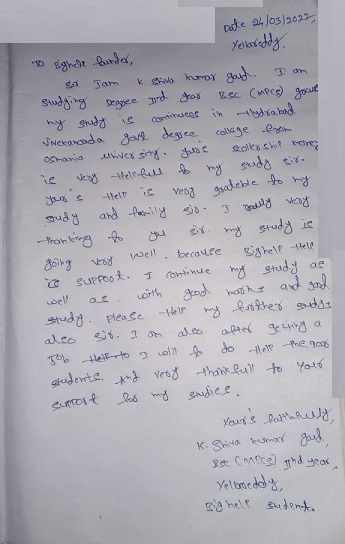 Date 24/03/2022,
Yellareddy.
To Bighelp funder,
Sir I am K. Shiva kumar goud. I am
studying Degree IInd year BSC (MPCS)
my study is continues in Hydrabad
Vivekananda govt degree college from
osmania university. your's scolership money
is very Helpfull to my study sir.
your's Help is very grateble to my
study and family sir. I really very
thanking to you sir. my study is
going very well. because Bighelp Help
support. I continue my study as
well as. with good marks and good
study. Please Help my further study
also sir. I am also after getting a
Job I will to do Help the poor
students. And very thankfull to your
support for my studies.
Your's faithfully,
K. Shiva kumar goud,
Bsc (MPCS) IInd year,
Yellareddy,
Big help student.